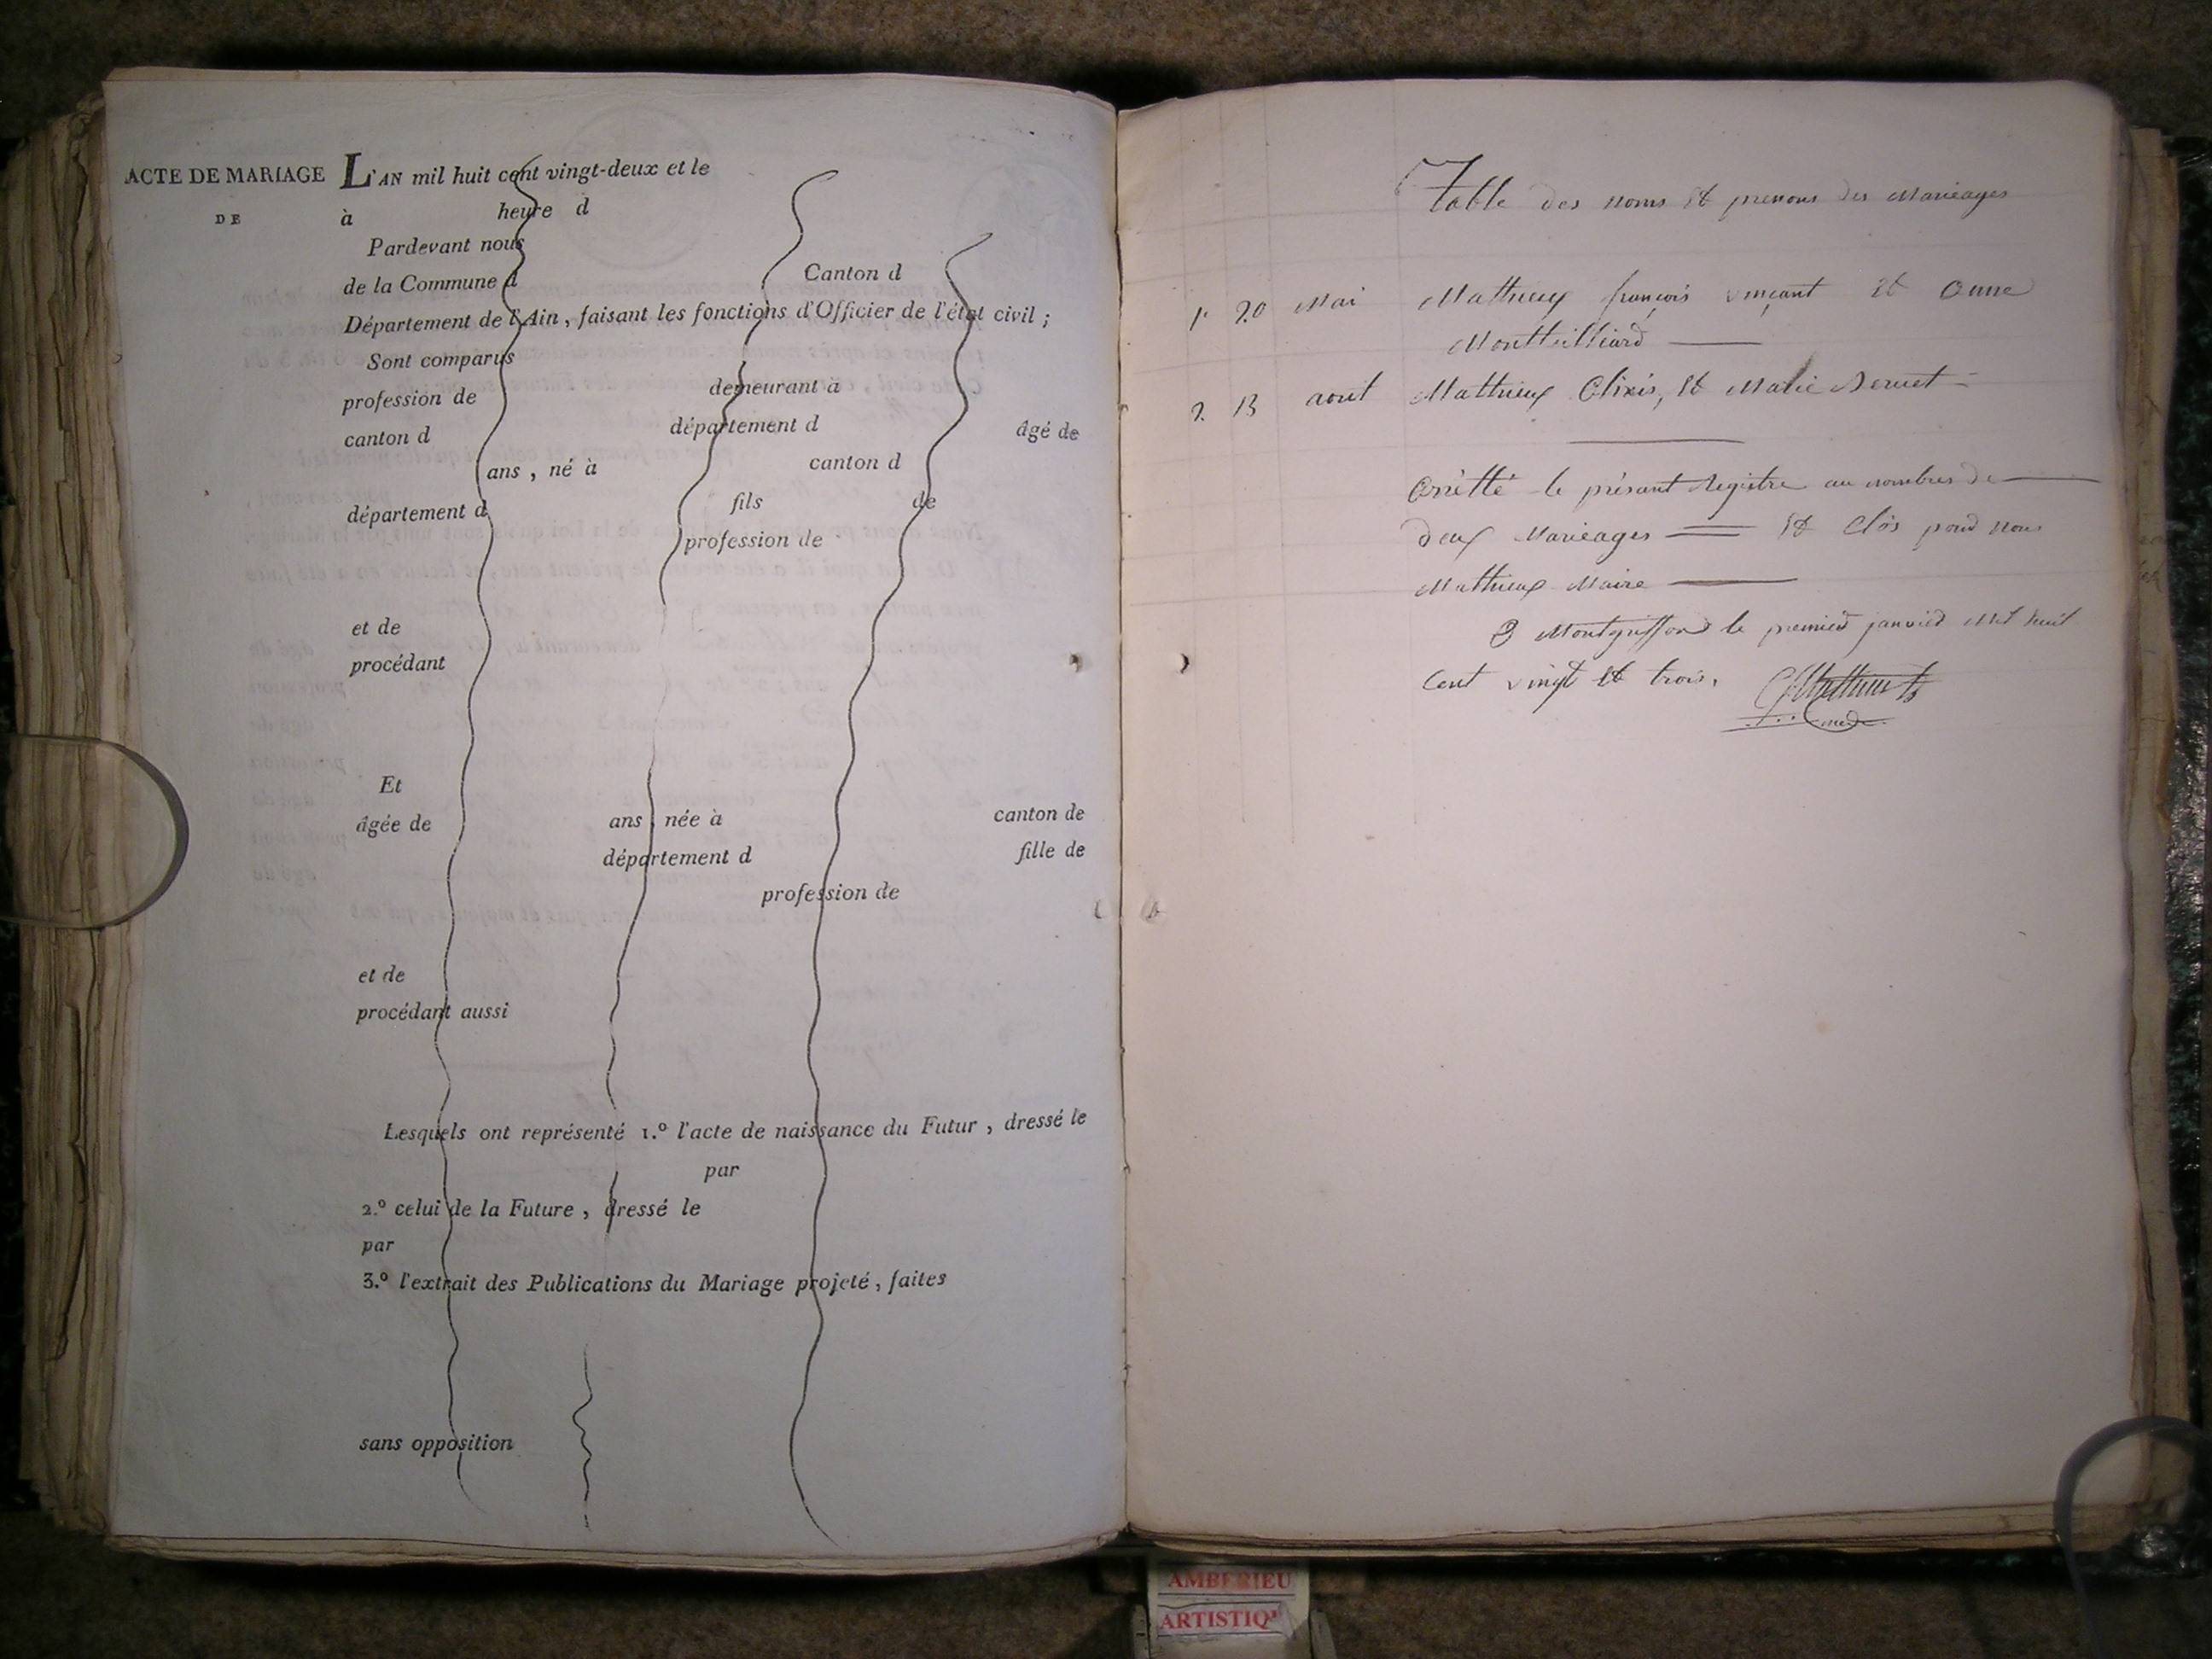 ACTE DE MARIAGE L'AN mil huit cent vingt-deux et le
DE à heure d
Pardevant nous
de la Commune d Canton d
Département de l'Ain, faisant les fonctions d'Officier de l'état civil ;
Sont comparus
profession de demeurant à
canton d département d âgé de
ans, né à canton d
département d fils de
profession de
et de
procédant
Et
âgée de ans, née à canton de
département d fille de
profession de
et de
procédant aussi
Lesquels ont représenté 1.º l'acte de naissance du Futur, dressé le
par
2.º celui de la Future, dressé le
par
3.º l'extrait des Publications du Mariage projeté, faites
sans opposition
Table des noms et prenons des Marieages
1. 20 Mai Mathieux françois vinçant et anne
Montteilliard
2. 13 aout Matthieux Elixis, et Marie
Arrêtté le présant Registre au nombres de
deux Marieages et Clos pard nous
Matthieux Maire
a Montgriffond le premied janvied Mil huit
Cent vingt et trois.
AMBERIEU
ARTISTIQ